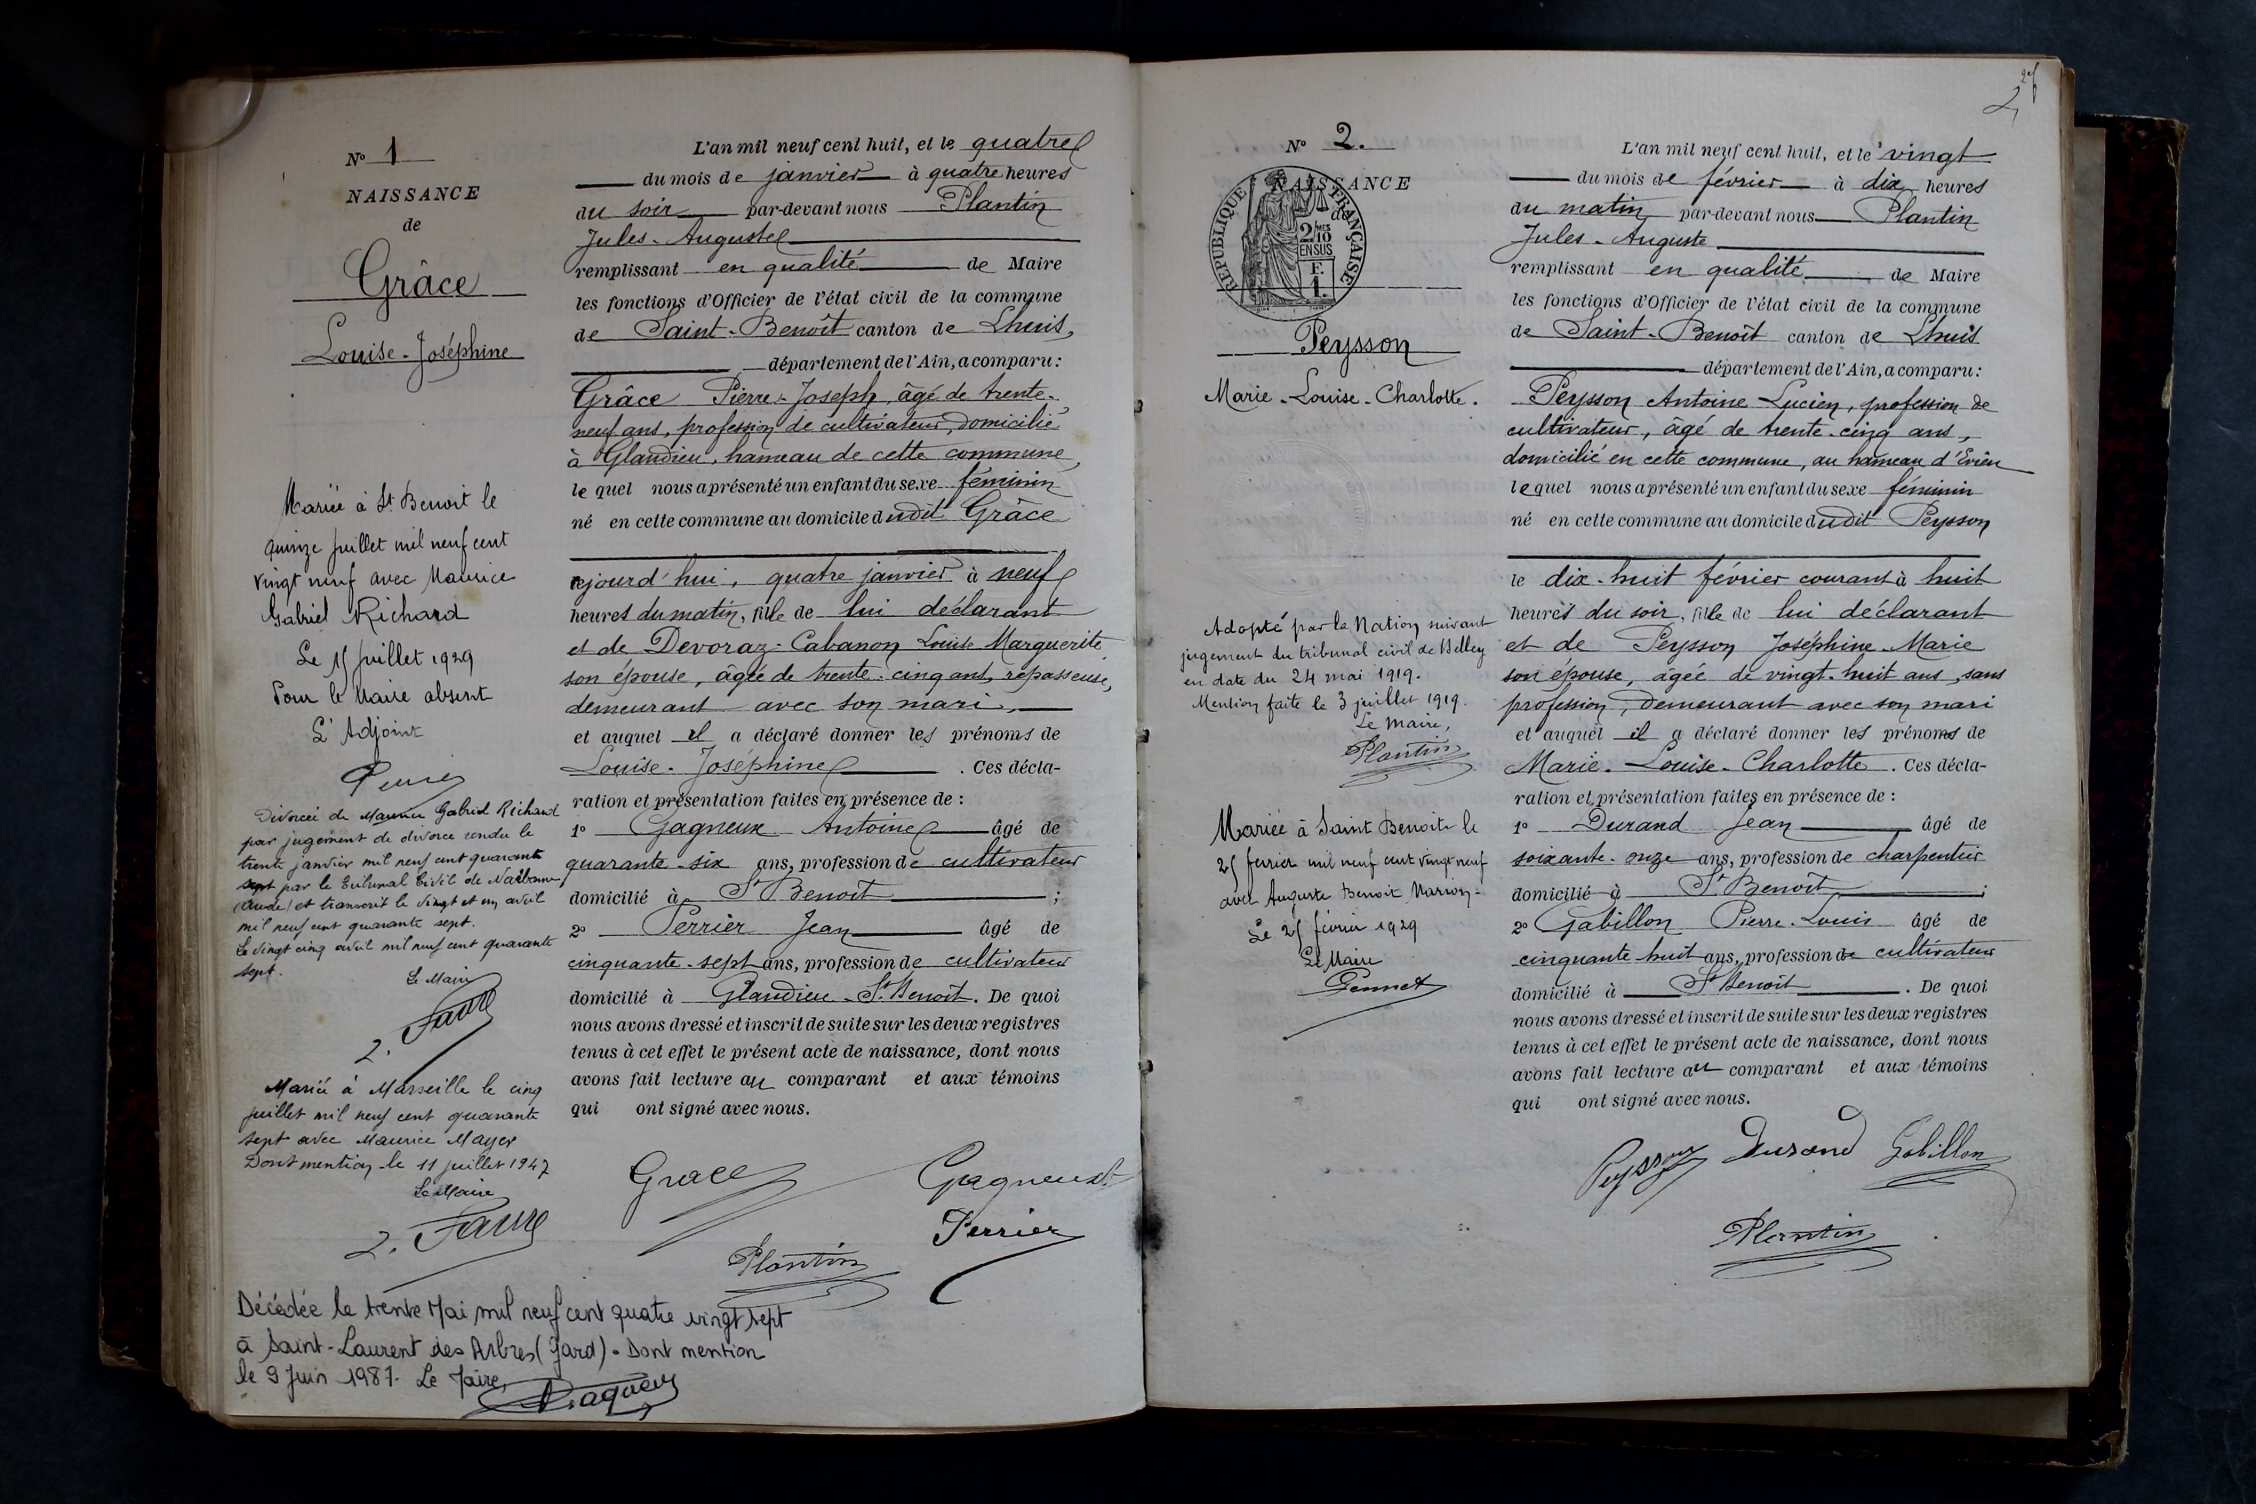 N° 1
NAISSANCE
de
Grâce
Louise-Joséphine
Mariée à St Benoit le
quinze juillet mil neuf cent
vingt neuf avec Maurice
Gabriel Richard
Le 15 juillet 1929
Pour le Maire absent
L'Adjoint
Divorcée de Maurice Gabriel Richard
par jugement de divorce rendu le
trente janvier mil neuf cent quarante
sept par le Tribunal Civil de Narbonne
(Aude) et transcrit le vingt et un avril
mil neuf cent quarante sept.
Le vingt cinq avril mil neuf cent quarante
sept.
Le Maire
L. Faure
Mariée à Marseille le cinq
juillet mil neuf cent quarante
sept avec Maurice Mayer
Dont mention le 11 juillet 1947
Le Maire
L. Faure
L'an mil neuf cent huit, et le quatre
du mois de janvier à quatre heures
du soir par-devant nous Plantin
Jules-Auguste
remplissant en qualité de Maire
les fonctions d'Officier de l'état civil de la commune
de Saint-Benoît canton de Lhuis,
département de l'Ain, a comparu :
Grâce Pierre-Joseph, âgé de trente-
neuf ans, profession de cultivateur, domicilié
à Glandieu, hameau de cette commune,
lequel nous a présenté un enfant du sexe féminin
né en cette commune au domicile dudit Grâce
ejourd'hui, quatre janvier à neuf
heures du matin, fille de lui déclarant
et de Devoraz-Cabanon Louise Marguerite
son épouse, âgée de trente-cinq ans, repasseuse,
demeurant avec son mari,
et auquel il a déclaré donner les prénoms de
Louise-Joséphine . Ces décla-
ration et présentation faites en présence de :
1° Gagneux Antoine âgé de
quarante-six ans, profession de cultivateur
domicilié à St Benoît ;
2° Perrier Jean âgé de
cinquante-sept ans, profession de cultivateur
domicilié à Glandieu-St Benoît. De quoi
nous avons dressé et inscrit de suite sur les deux registres
tenus à cet effet le présent acte de naissance, dont nous
avons fait lecture au comparant et aux témoins
qui ont signé avec nous.
Grace Gagneux
Perrier
Plantin
Décédée le trente Mai mil neuf cent quatre vingt sept
à Saint-Laurent des Arbres (Gard). Dont mention
le 9 Juin 1987. Le Maire,
N° 2.
NAISSANCE
de
REPUBLIQUE FRANÇAISE
2/10
EN SUS
F.
1.
Peysson
Marie-Louise-Charlotte.
Adopté par la Nation suivant
jugement du tribunal civil de Belley
en date du 24 mai 1919.
Mention faite le 3 juillet 1919.
Le Maire,
Plantin
Mariée à Saint Benoit le
25 fevrier mil neuf cent vingt neuf
avec Auguste Benoit Marion-
Le 25 février 1929
Le Maire
L'an mil neuf cent huit, et le vingt
du mois de février à dix heures
du matin par-devant nous Plantin
Jules-Auguste
remplissant en qualité de Maire
les fonctions d'Officier de l'état civil de la commune
de Saint-Benoît canton de Lhuis
département de l'Ain, a comparu :
Peysson Antoine Lucien, profession de
cultivateur, âgé de trente-cinq ans,
domicilié en cette commune, au hameau d'Evieu
lequel nous a présenté un enfant du sexe féminin
né en cette commune au domicile dudit Peysson
le dix-huit février courant à huit
heures du soir, fille de lui déclarant
et de Peysson Joséphine-Marie
son épouse, âgée de vingt-huit ans, sans
profession, demeurant avec son mari
et auquel il a déclaré donner les prénoms de
Marie-Louise-Charlotte . Ces décla-
ration et présentation faites en présence de :
1° Durand Jean âgé de
soixante-onze ans, profession de charpentier
domicilié à St Benoît ;
2° Gabillon Pierre-Louis âgé de
cinquante huit ans, profession de cultivateur
domicilié à St Benoît . De quoi
nous avons dressé et inscrit de suite sur les deux registres
tenus à cet effet le présent acte de naissance, dont nous
avons fait lecture au comparant et aux témoins
qui ont signé avec nous.
Peysson Durand Gabillon
Plantin